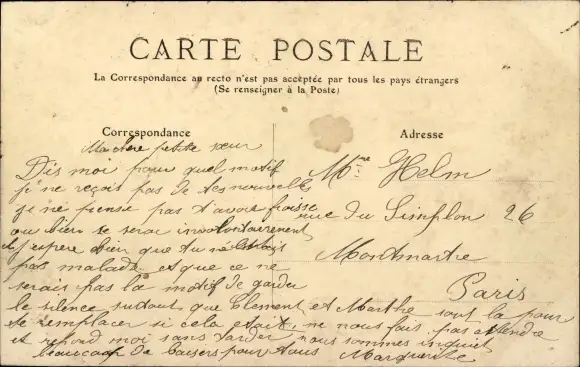 CARTE POSTALE
La Correspondance au recto n'est pas acceptée par tous les pays étrangers
(Se renseigner à la Poste)
Correspondance
Ma chère petite sœur
Dis moi pour quel motif
je ne reçoit pas de tes nouvelle
je ne pense pas t'avoir froisse
ou bien se serai involontairement
et j'espere bien que tu
pas malade et que ce ne
serais pas la motif de garder
le silence surtout que Clement et Marthe sont la pour
te remplacer si cela etait, ne nous fais pas attendre
et repond moi sans tarder nous sommes inquiet
beaucoup de baisers pour tous Marguerite
Adresse
Mme Helm
rue du Simplon 26
Montmartre
Paris